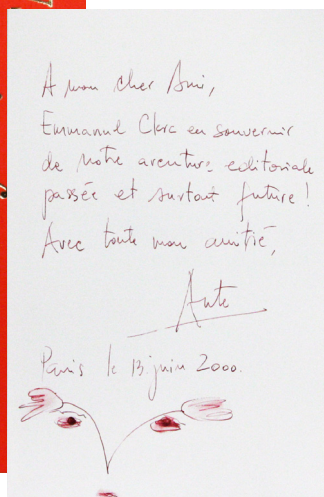 A mon cher Ami,
Emmanuel Clerc en souvenir
de notre aventure editoriale
passée et surtout future !
Avec toute mon amitié,
Ante
Paris le 13 juin 2000.